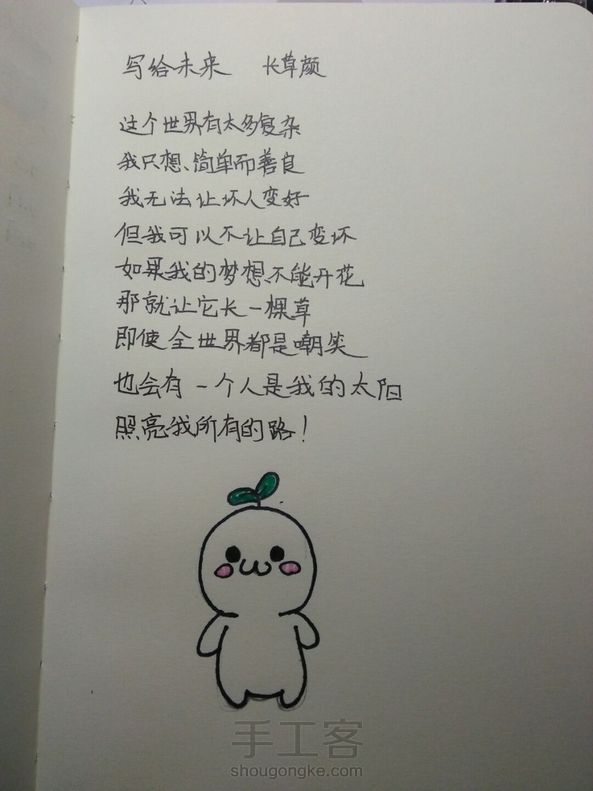 写给未来 长草颜
这个世界有太多复杂
我只想、简单而善良
我无法让坏人变好
但我可以不让自己变坏
如果我的梦想、不能开花
那就让它长一棵草
即使全世界都是嘲笑
也会有一个人是我的太阳
照亮我所有的路！
手工客
shougongke.com